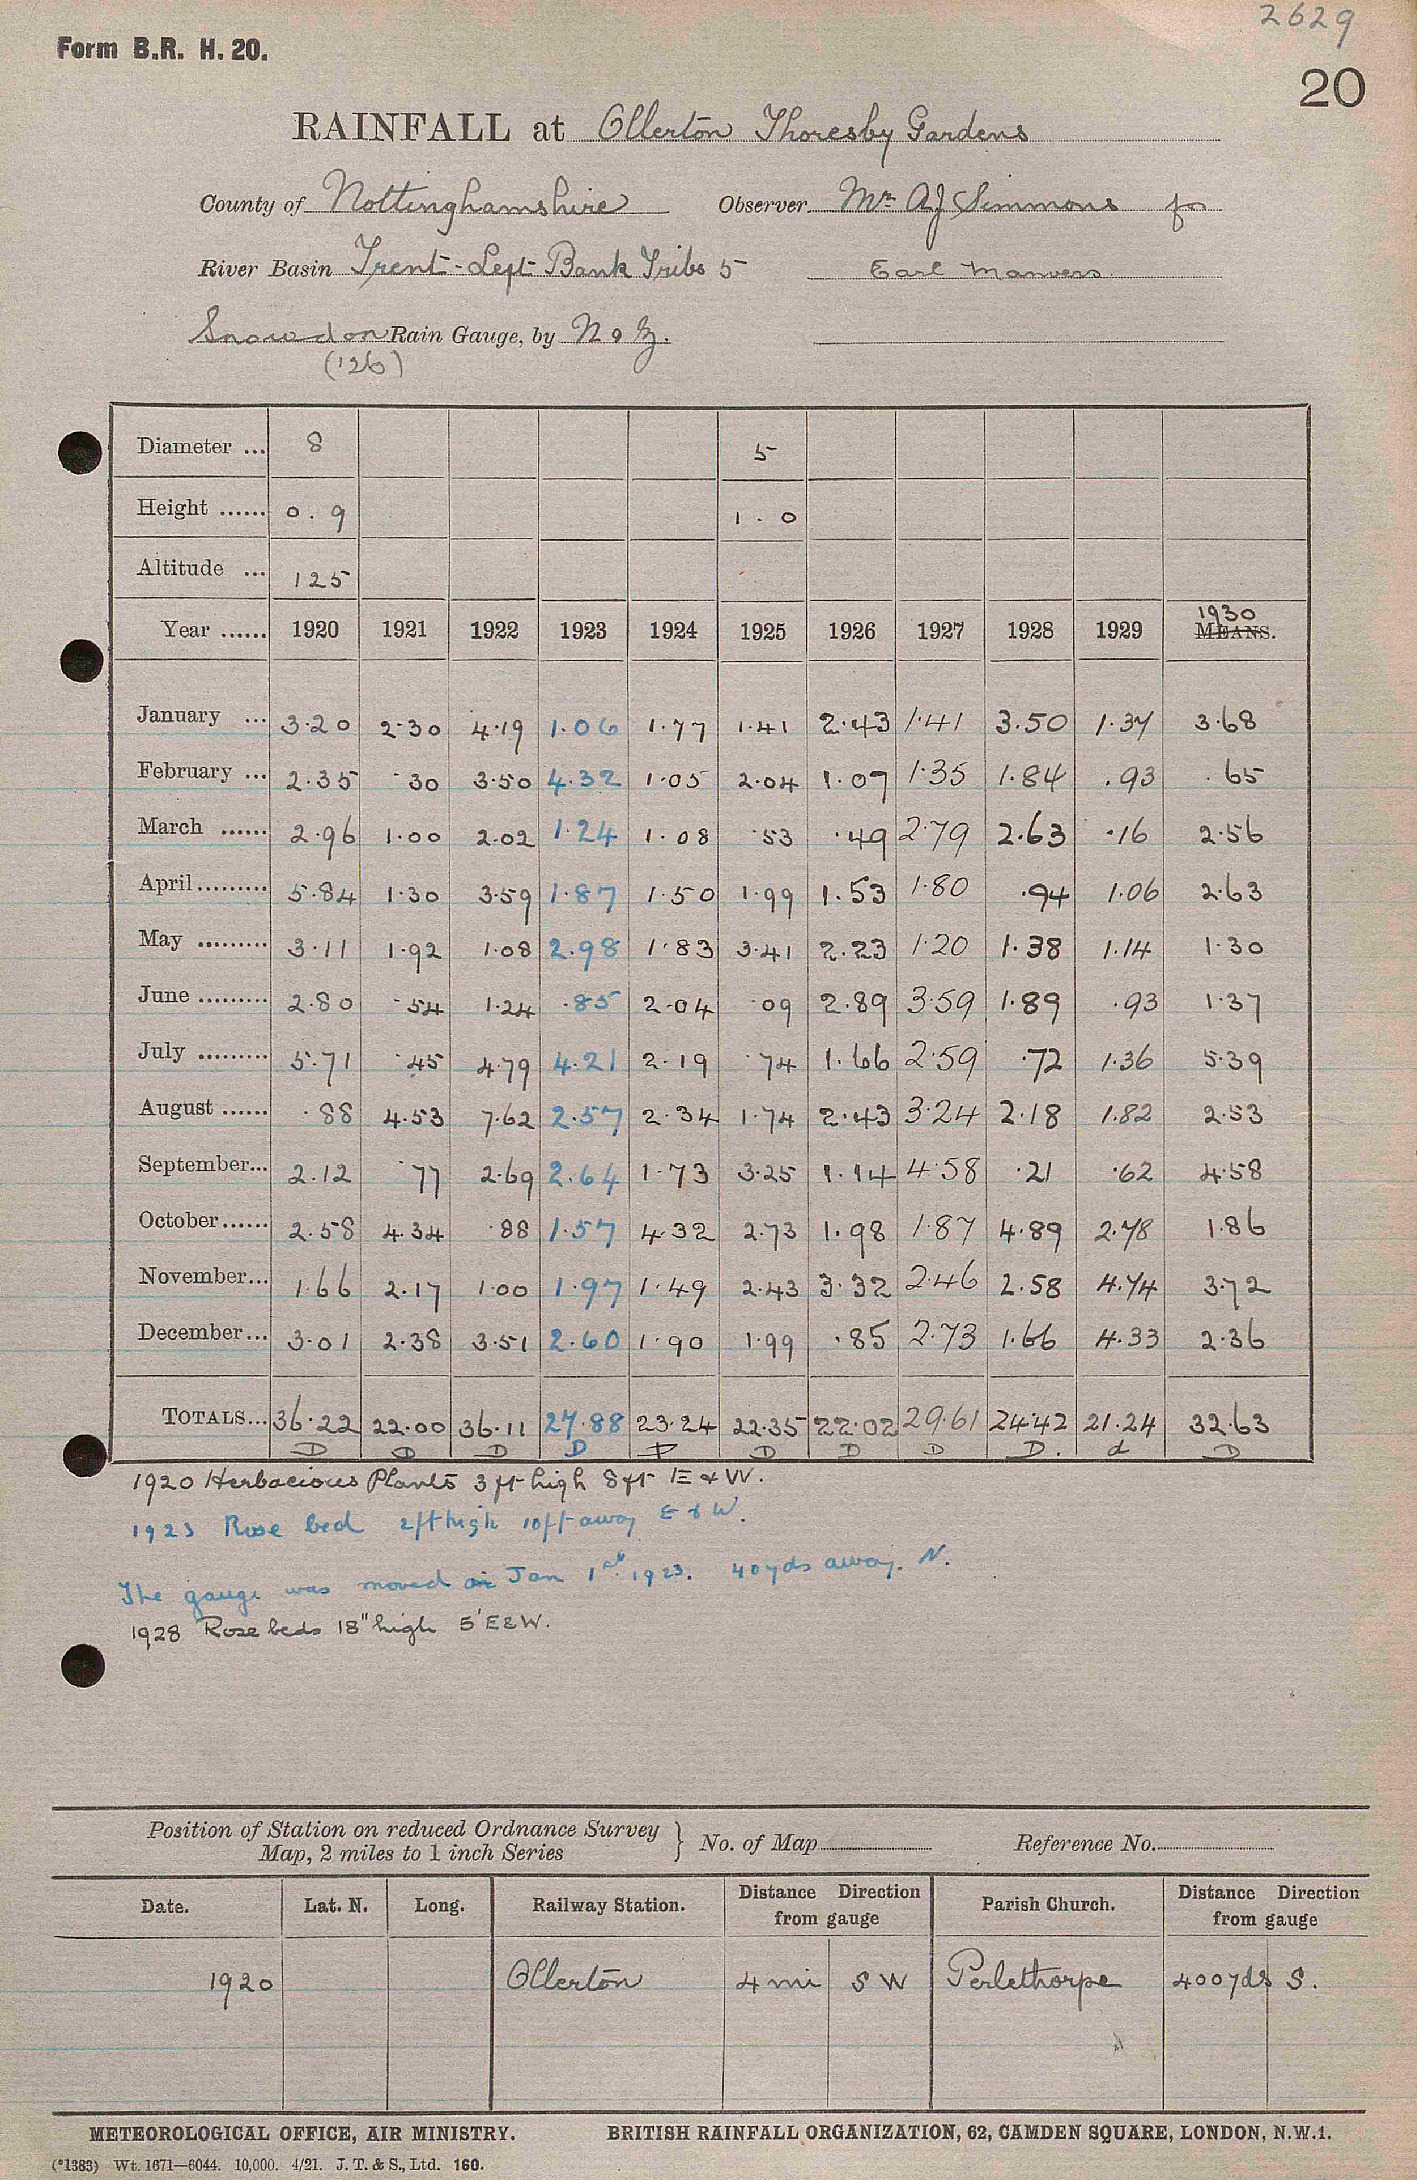 2629
Form B.R. H. 20.
20
RAINFALL at Ollerton Thoresby Gardens
County of Nottinghamshire Observer Mr AJ Simmons for
River Basin Trent - Left Bank Tribs 5 Earl Manvers
Snowdon Rain Gauge, by N & Z.
(126)
Diameter ... 8 5
Height ...... 0.9 1.0
Altitude ... 125
1930
Year ...... 1920 1921 1922 1923 1924 1925 1926 1927 1928 1929 MEANS.
January ... 3.20 2.30 4.19 1.06 1.77 1.41 2.43 1.41 3.50 1.37 3.68
February ... 2.35 .30 3.50 4.32 1.05 2.04 1.07 1.35 1.84 .93 .65
March ...... 2.96 1.00 2.02 1.24 1.08 .53 .49 2.79 2.63 .16 2.56
April ......... 5.84 1.30 3.59 1.87 1.50 1.99 1.53 1.80 .94 1.06 2.63
May ......... 3.11 1.92 1.08 2.98 1.83 3.41 2.23 1.20 1.38 1.14 1.30
June ......... 2.80 .54 1.24 .85 2.04 .09 2.89 3.59 1.89 .93 1.37
July ......... 5.71 .45 4.79 4.21 2.19 .74 1.66 2.59 .72 1.36 5.39
August ...... .88 4.53 7.62 2.57 2.34 1.74 2.43 3.24 2.18 1.82 2.53
September... 2.12 .77 2.69 2.64 1.73 3.25 1.14 4.58 .21 .62 4.58
October...... 2.58 4.34 .88 1.57 4.32 2.73 1.98 1.87 4.89 2.78 1.86
November... 1.66 2.17 1.00 1.97 1.49 2.43 3.32 2.46 2.58 4.74 3.72
December... 3.01 2.38 3.51 2.60 1.90 1.99 .85 2.73 1.66 4.33 2.36
TOTALS... 36.22 22.00 36.11 27.88 23.24 22.35 22.02 29.61 24.42 21.24 32.63
D D D D D D D D D. d D
1920 Herbacious Plants 3 ft high 8 ft E & W.
1923 Rose bed 2ft high 10ft away E & W.
The gauge was moved on Jan 1st 1923. 40yds away. N.
1928 Rose beds 18" high 5' E & W.
Position of Station on reduced Ordnance Survey
Map, 2 miles to 1 inch Series } No. of Map Reference No.
Date. Lat. N. Long. Railway Station. Distance Direction from gauge Parish Church. Distance Direction from gauge
1920 Ollerton 4 mi S W Perlethorpe 400yds S.
METEOROLOGICAL OFFICE, AIR MINISTRY. BRITISH RAINFALL ORGANIZATION, 62, CAMDEN SQUARE, LONDON, N.W.1.
(*1383) Wt. 1671—6044. 10,000. 4/21. J. T. & S., Ltd. 160.